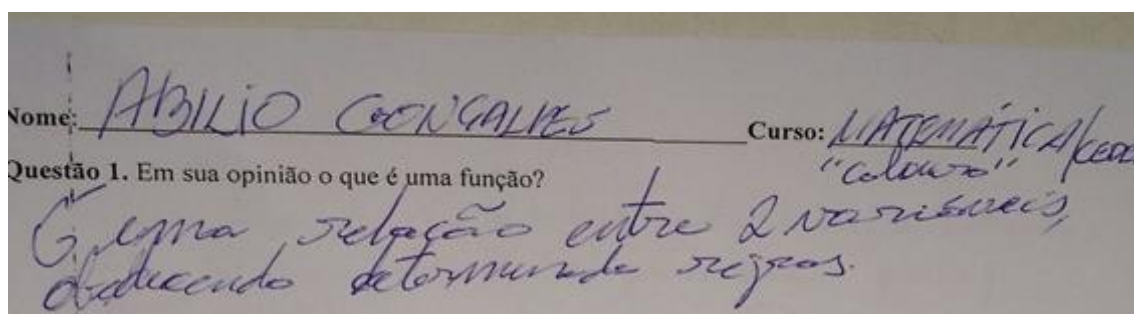 Nome: ABILIO GONÇALVES Curso: MATEMÁTICA/CEDE
"Calouro"
Questão 1. Em sua opinião o que é uma função?
É uma relação entre 2 variáveis,
obedecendo determinada regras.